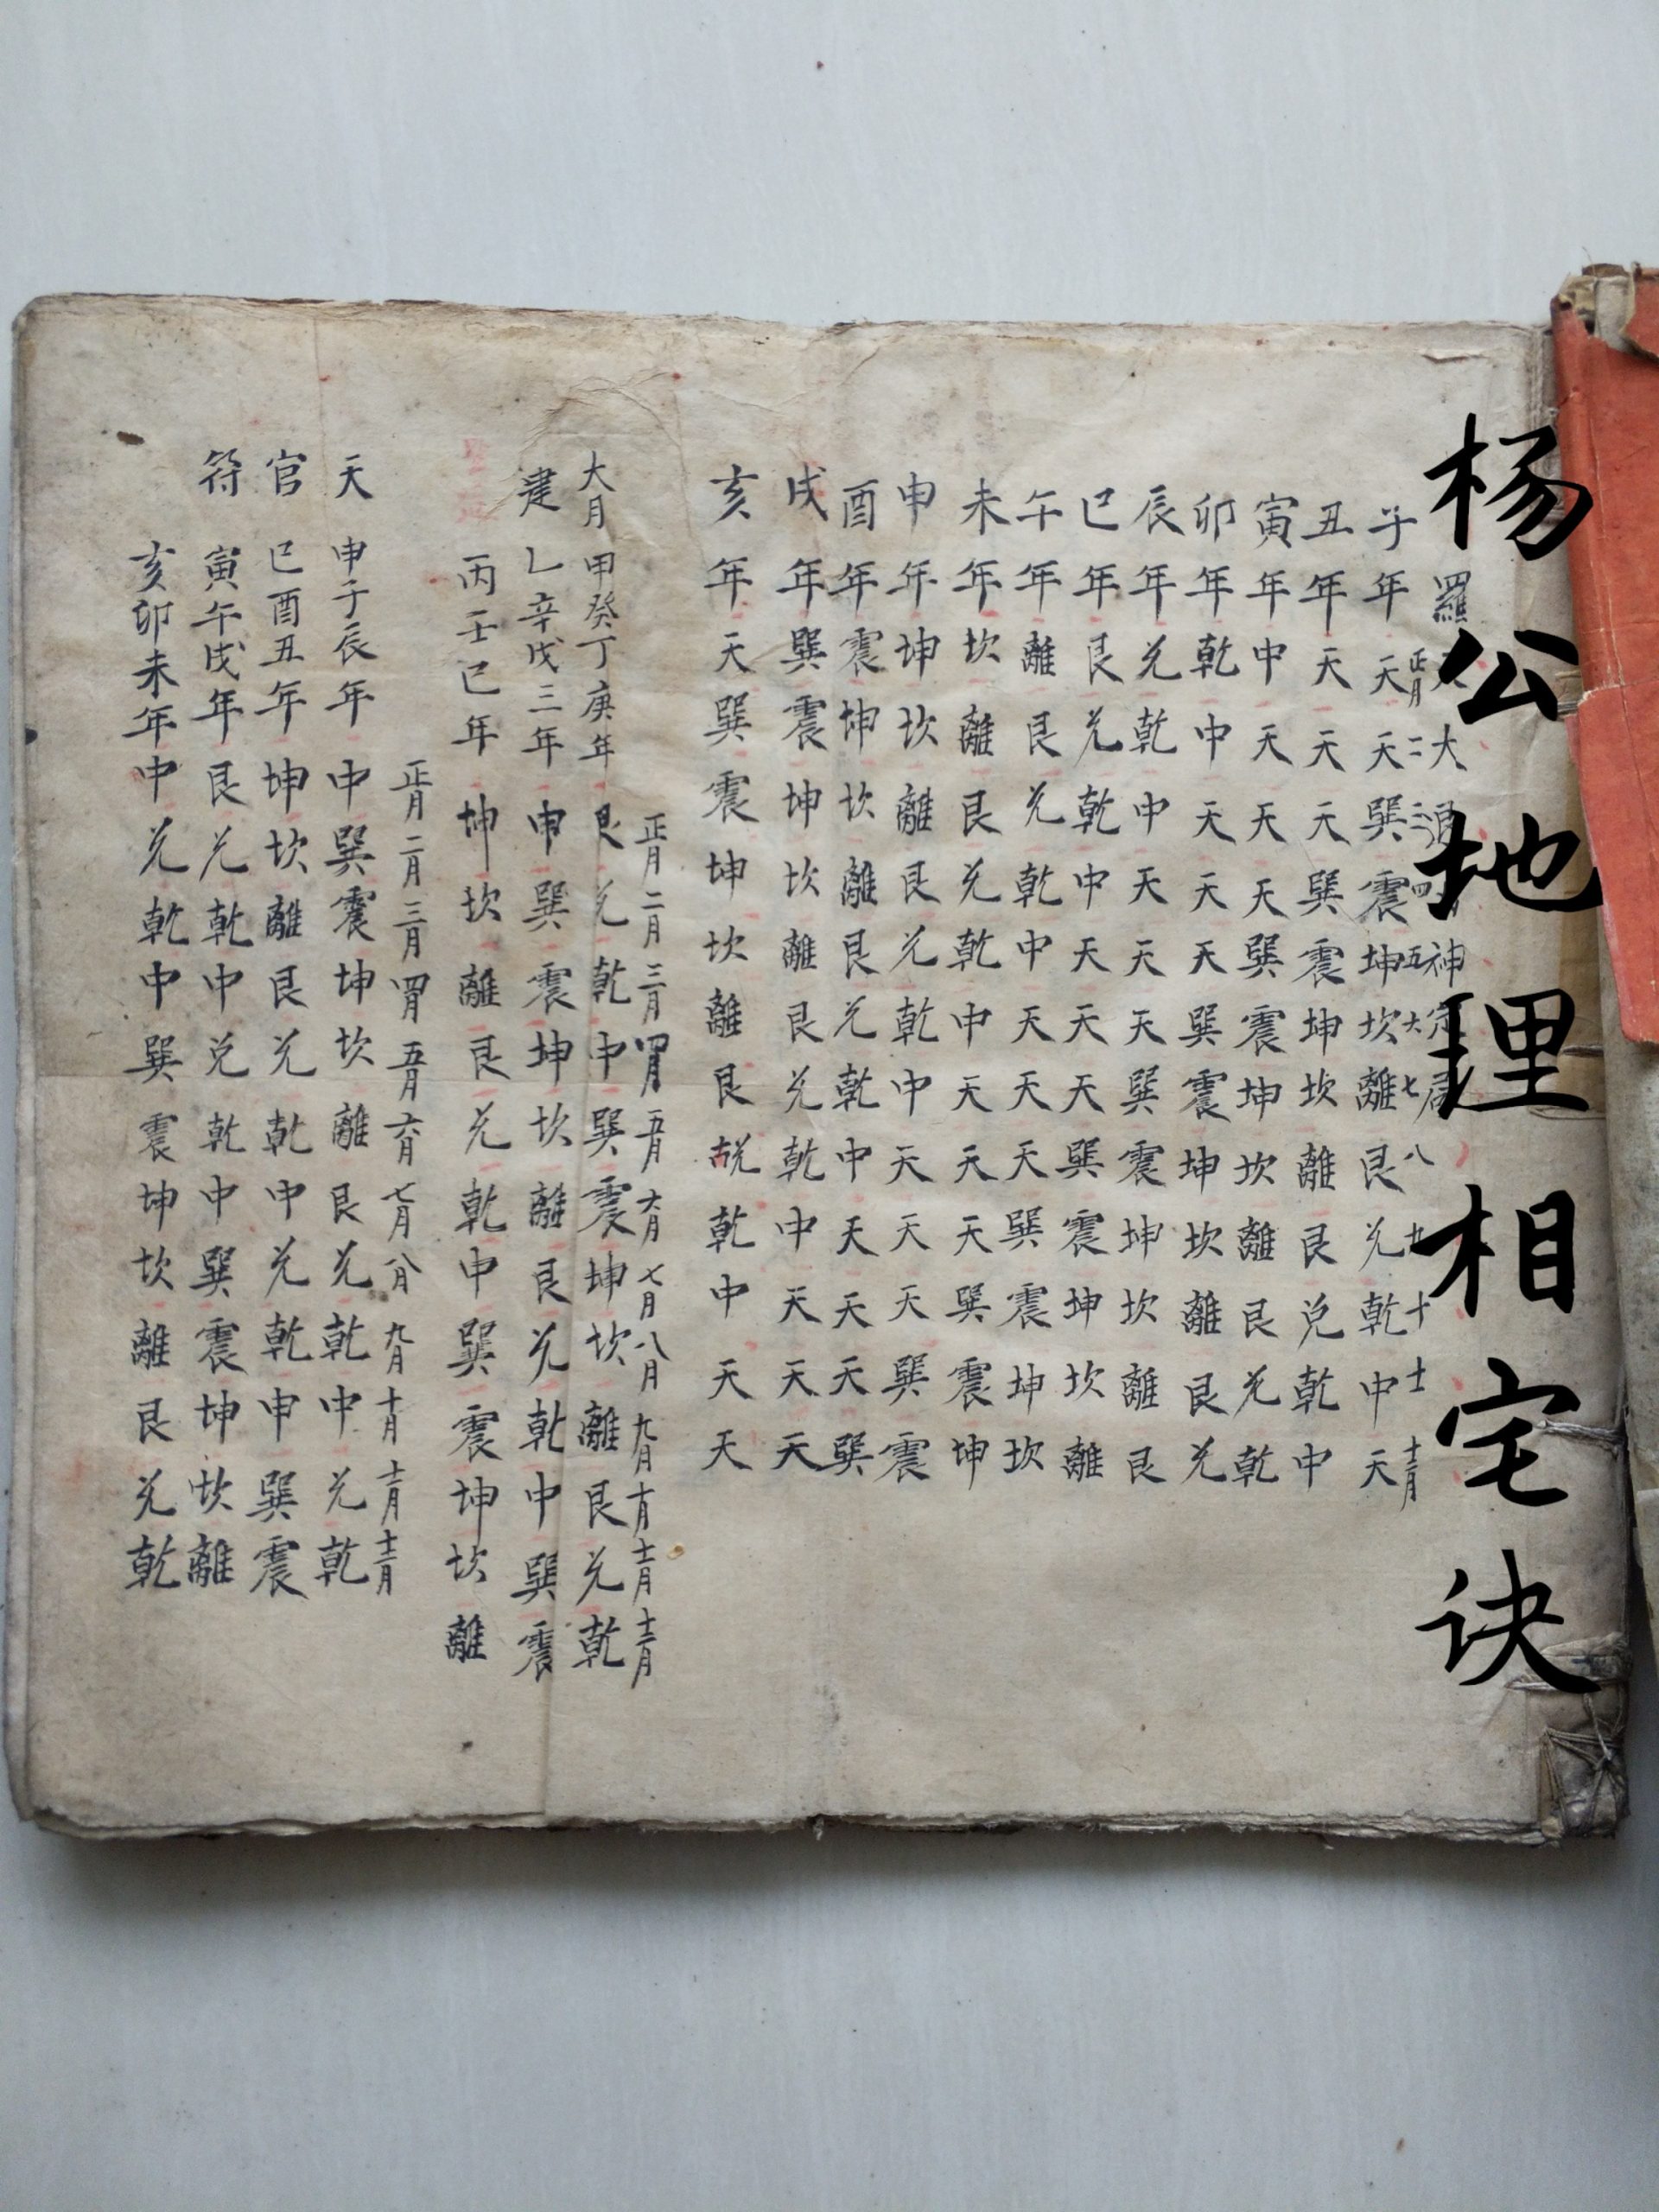 杨公地理相宅诀
羅天大退神定局
正月二三四五六七八九十十一十二月
子年天天巽震坤坎離艮兊乾中天
丑年天天天巽震坤坎離艮兑乾中
寅年中天天天巽震坤坎離艮兊乾
卯年乾中天天天巽震坤坎離艮兊
辰年兊乾中天天天巽震坤坎離艮
巳年艮兊乾中天天天巽震坤坎離
午年離艮兊乾中天天天巽震坤坎
未年坎離艮兊乾中天天天巽震坤
申年坤坎離艮兊乾中天天天巽震
酉年震坤坎離艮兊乾中天天天巽
戌年巽震坤坎離艮兊乾中天天天
亥年天巽震坤坎離艮兊乾中天天
正月二月三月四月五月六月七月八月九月十月十一月十二月
大月甲癸丁庚年艮兊乾中巽震坤坎離艮兊乾
建乙辛戊三年中巽震坤坎離艮兊乾中巽震
丙壬己年坤坎離艮兊乾中巽震坤坎離
正月二月三月四月五月六月七月八月九月十月十一月十二月
天申子辰年中巽震坤坎離艮兊乾中兊乾
官巳酉丑年坤坎離艮兊乾中兊乾中巽震
符寅午戌年艮兊乾中兑乾中巽震坤坎離
亥卯未年中兊乾中巽震坤坎離艮兊乾